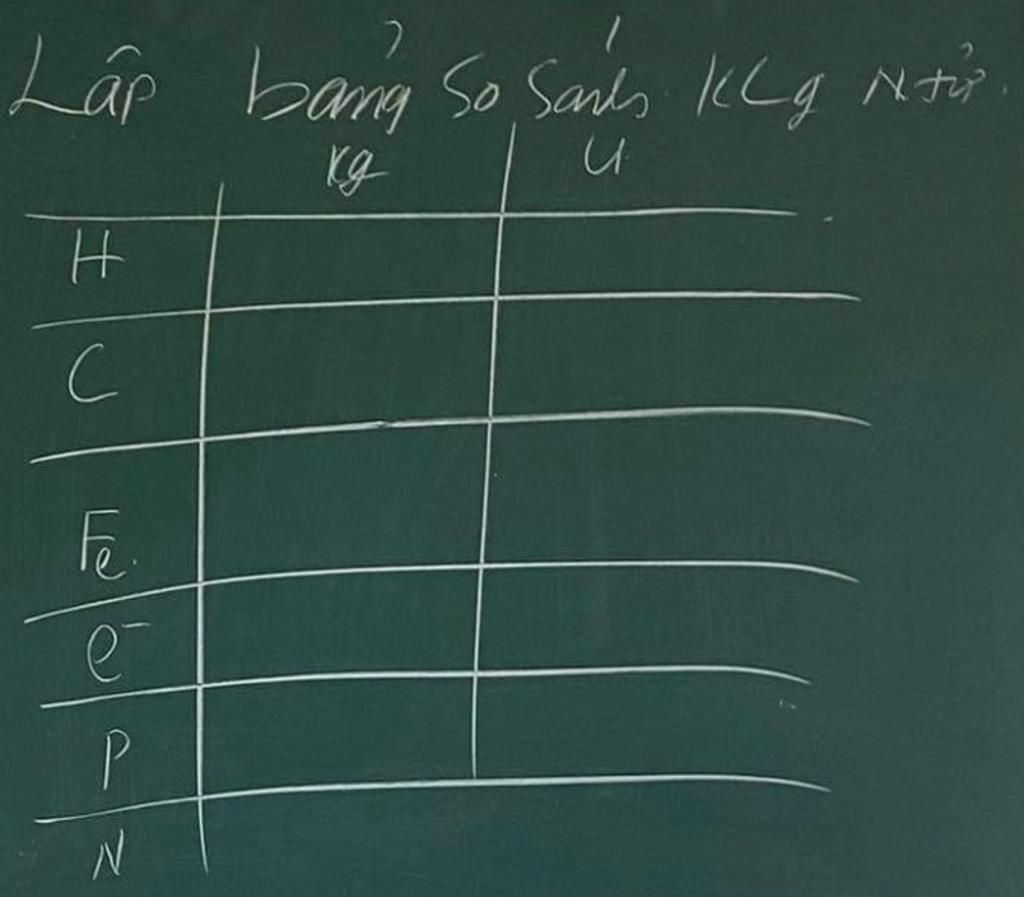 Lập bảng so sánh KLg Ntử.
kg u
H
C
Fe.
e⁻
P
N